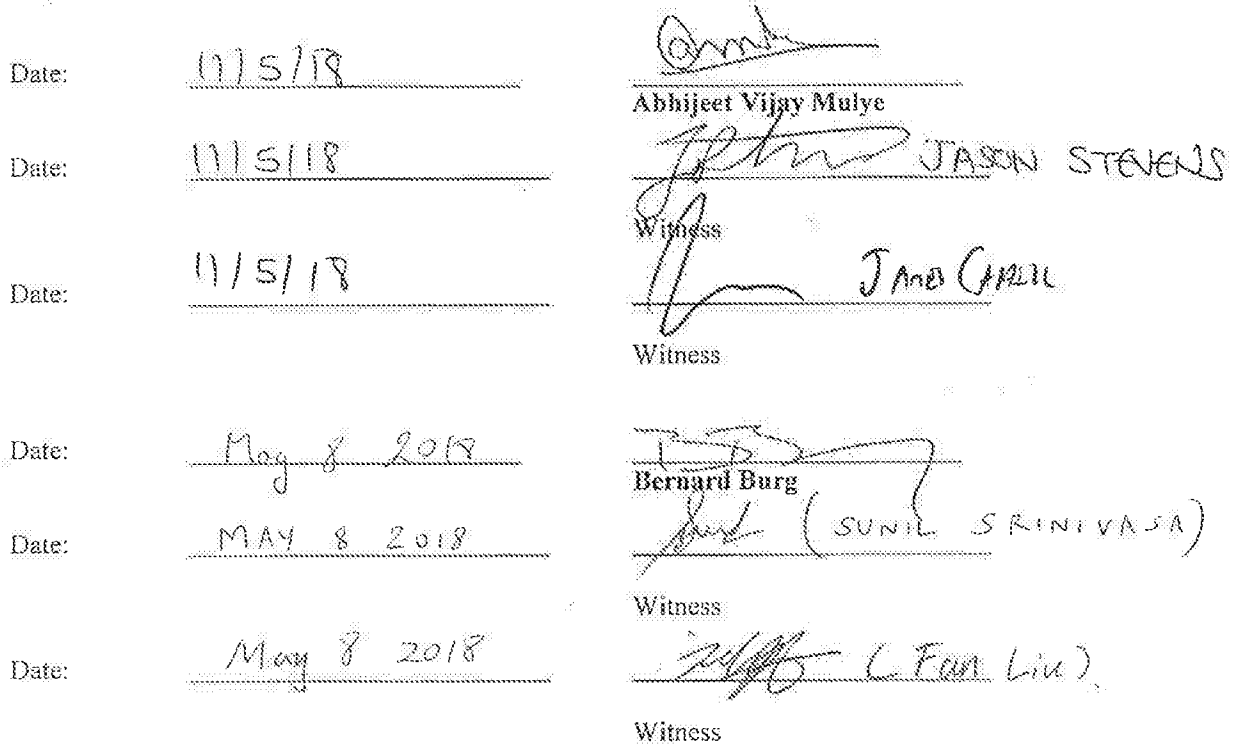 Date: 17/5/18
Abhijeet Vijay Mulye
Date: 17/5/18 JASON STEVENS
Witness
Date: 17/5/18 JAMES
Witness
Date: May 8 2018
Bernard Burg
Date: MAY 8 2018 (SUNIL SRINIVASA)
Witness
Date: May 8 2018 (Fan Liu)
Witness